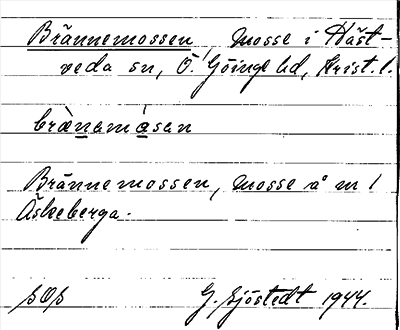 Brännemossen, mosse i Häst-
veda sn, Ö. Göinge hd, Krist. l.
brä̀nəmåsən
Brännemossen, mosse å m 1
Äskeberga.
SOS
G. Sjöstedt 1944.